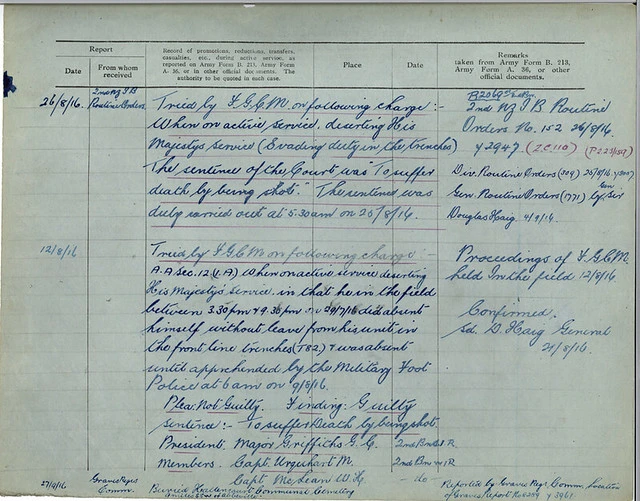 Report
Date
From whom received
Record of promotions, reductions, transfers, casualties, etc., during active service, as reported on Army Form B. 213, Army Form A. 36, or in other official documents. The authority to be quoted in each case.
Place
Date
Remarks
taken from Army Form B. 213, Army Form A. 36, or other official documents.
26/8/16.
2nd NZ I B
Routine Orders
Tried by F.G.C.M. on following charge :-
When on active service, deserting His
Majesty's Service (Evading duty in the trenches)
The sentence of the Court was "To suffer
death by being shot." The sentence was
duly carried out at 5.30 am on 25/8/16.
2nd NZ I B Routine
Orders No. 152 26/8/16.
Y2947 (Z.C.110)
Div. Routine Orders (309) 25/8/16
Gen. Routine Orders (1771) by Sir
Douglas Haig 4/9/16.
12/8/16
Tried by F.G.C.M on following charge :-
A.A. Sec. 12 (1.A) When on active service deserting
His Majesty's service in that he in the field
between 3.30 pm & 9.30 pm on 29/7/16 did absent
himself without leave from his unit in
the front line trenches (T82) & was absent
until apprehended by the Military Foot
Police at 6 am on 9/8/16.
Plea: Not Guilty. Finding: Guilty
Sentence :- To suffer Death by being shot.
President: Major Griffiths G.C. 2nd Bn
Members. Capt. Urquhart M. 2nd Bn
Capt. McLean W.H. - do -
Proceedings of F.G.C.M.
held In the field 12/8/16.
Confirmed.
Sd. D. Haig General
21/8/16.
27/9/16
Graves Regs
Comm.
Buried Hallencourt Communal Cemetery
Reported by Graves Regs. Comm. Location
of Graves Report No.